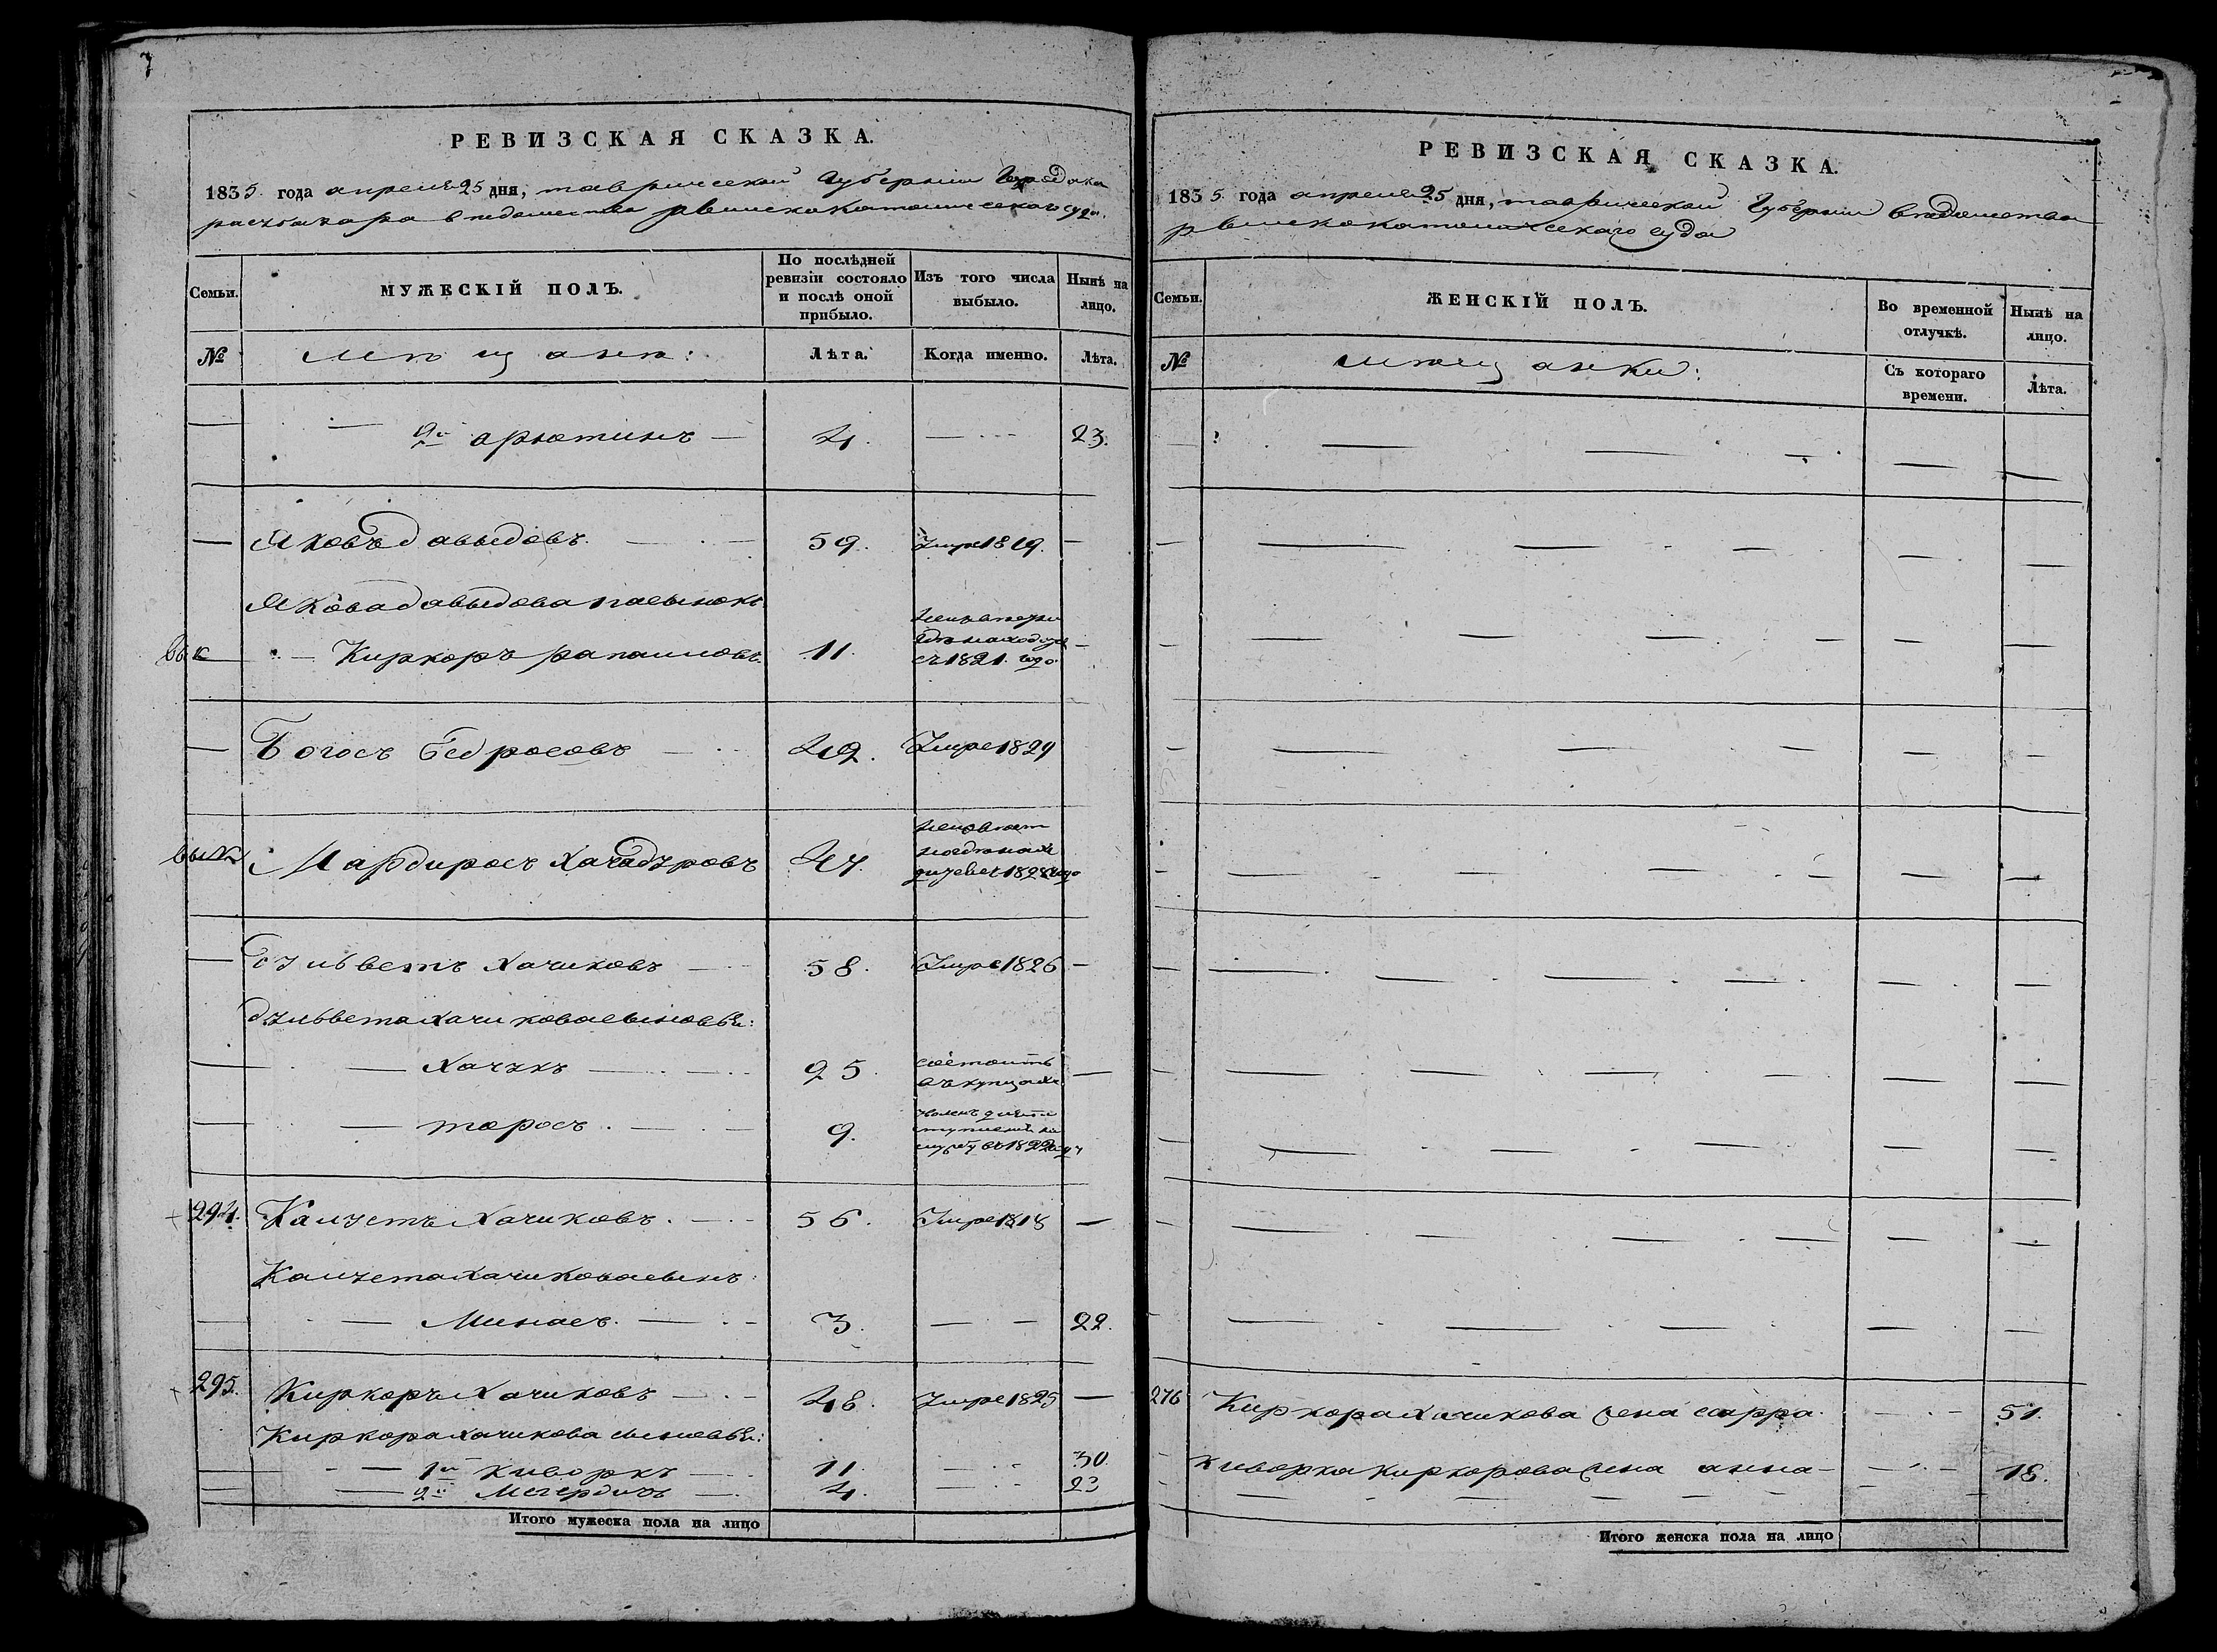 РЕВИЗСКАЯ СКАЗКА.
1835 года апреля 25 дня, таврической Губернии Города
карасубазара ведомства римскокатолического суда.
Семьи.
МУЖЕСКІЙ ПОЛЪ.
По послѣдней ревизіи состояло и послѣ оной прибыло.
Изъ того числа выбыло.
Нынѣ на лицо.
№
мещане:
Лѣта.
Когда именно.
Лѣта.
2й арютинъ 4. 23.
Яковъ давыдовъ. 59. Умре 1819.
Якова давыдова пасынокъ
Киркоръ 11.
съ 1821. года
Богосъ бедросовъ 49. Умре 1829
Мардиросъ хачадуровъ 47.
1828 года
хачиковъ 58. Умре 1826
хачикова сыновья:
Хачикъ 25. состоитъ
въ купцахъ
торосъ 9.
службу въ 1822 году
294. Калустъ хачиковъ. 56. Умре 1818
Калуста хачикова сынъ:
Минасъ. 3. 22.
295. Киркоръ хачиковъ 48. Умре 1825
Киркора хачикова сыновья:
1й киворкъ 11. 30.
2й Мегердичъ 4. 23
Итого мужеска пола на лицо
РЕВИЗСКАЯ СКАЗКА.
1835 года апреля 25 дня, таврической Губернии ведомства
римскокатолического суда
Семьи.
ЖЕНСКІЙ ПОЛЪ.
Во временной отлучкѣ.
Нынѣ на лицо.
№
мещанки:
Съ котораго времени.
Лѣта.
276 Киркора хачикова жена сарра 51.
киворка киркорова жена анна 18.
Итого женска пола на лицо